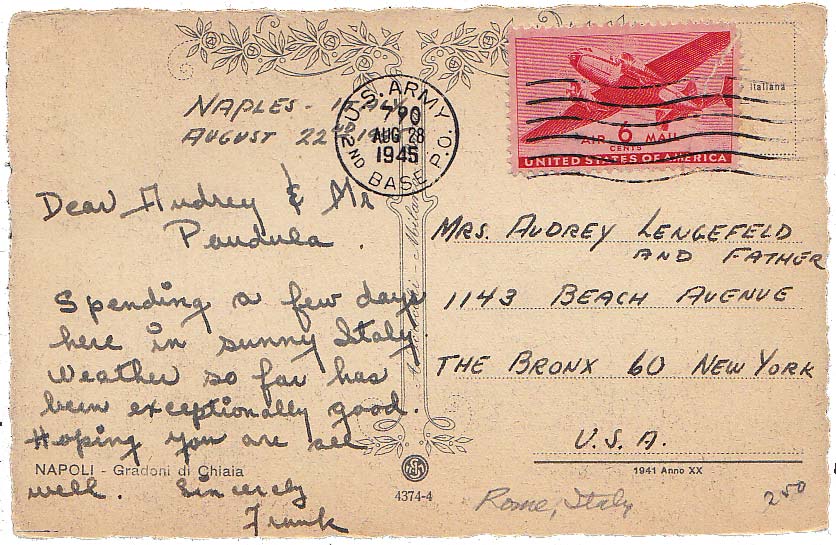 NAPLES - ITALY
AUGUST 22nd 19
U.S. ARMY
790
AUG 28
1945
2ND BASE P.O.
AIR 6 MAIL
CENTS
UNITED STATES OF AMERICA
italiana
Dear Audrey & Mr
Pandula.
Spending a few days
here in sunny Italy.
Weather so far has
been exceptionally good.
Hoping you are all
well. Sincerely
Frank
NAPOLI - Gradoni di Chiaia
Milano
4374-4
MRS. AUDREY LENGEFELD
AND FATHER
1143 BEACH AVENUE
THE BRONX 60 NEW YORK
U.S.A.
1941 Anno XX
Rome, Italy
250